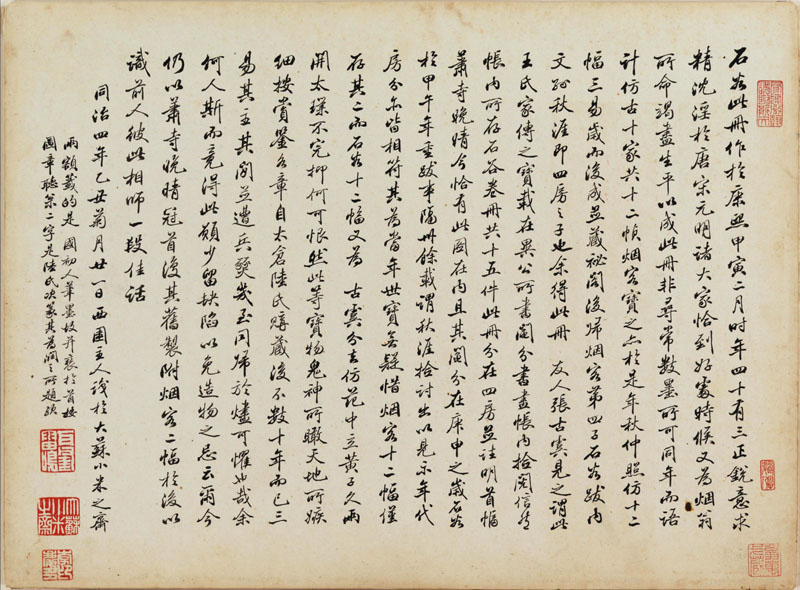 石谷此冊作於康熙甲寅二月時年四十有三正銳意求
精沈淫於唐宋元明諸大家恰到好處時候又為烟翁
所命竭盡生平以成此冊非尋常數墨所可同年而語
計仿古十家共十二幀烟客寶之亦於是年秋仲照仿十二
幅三易歲而後成並藏祕閣後歸烟客第四子石谷跋內
文孫秋涯即四房之子也余得此冊 友人張古寞見之謂此
王氏家傳之寶載在異公所書鬮分書畫帳內拾閱信然
帳內所存石谷卷冊共十五件此冊分在四房並註明首幅
蕭寺晚晴今恰有此圖在內且其鬮分在庚申之歲石谷
於甲午年重跋事隔卅餘載謂秋涯檢討出以見示年代
房分亦皆相符其為當年世寶無疑惜烟客十二幅僅
存其二而石谷十二幅又為 古寞分去仿范中立黃子久兩
開太璞不完抑何可恨然此等寶物鬼神所瞰天地所嫉
細按賞鑒各章自太倉陸氏歸藏後不數十年而已三
易其主其間並遭兵燹幾至同歸於燼可懼也哉余
何人斯而竟得此願少留缺陷以免造物之忌云爾今
仍以蕭寺晚晴冠首復其舊製附烟客二幅於後以
識前人彼此相師一段佳話
同治四年乙丑菊月廿一日西圃主人識於大蘇小米之齋
兩額籤的是 國初人筆墨故並裝於首按
圖章聽松二字是陸氏決篆其為潤之所題跋